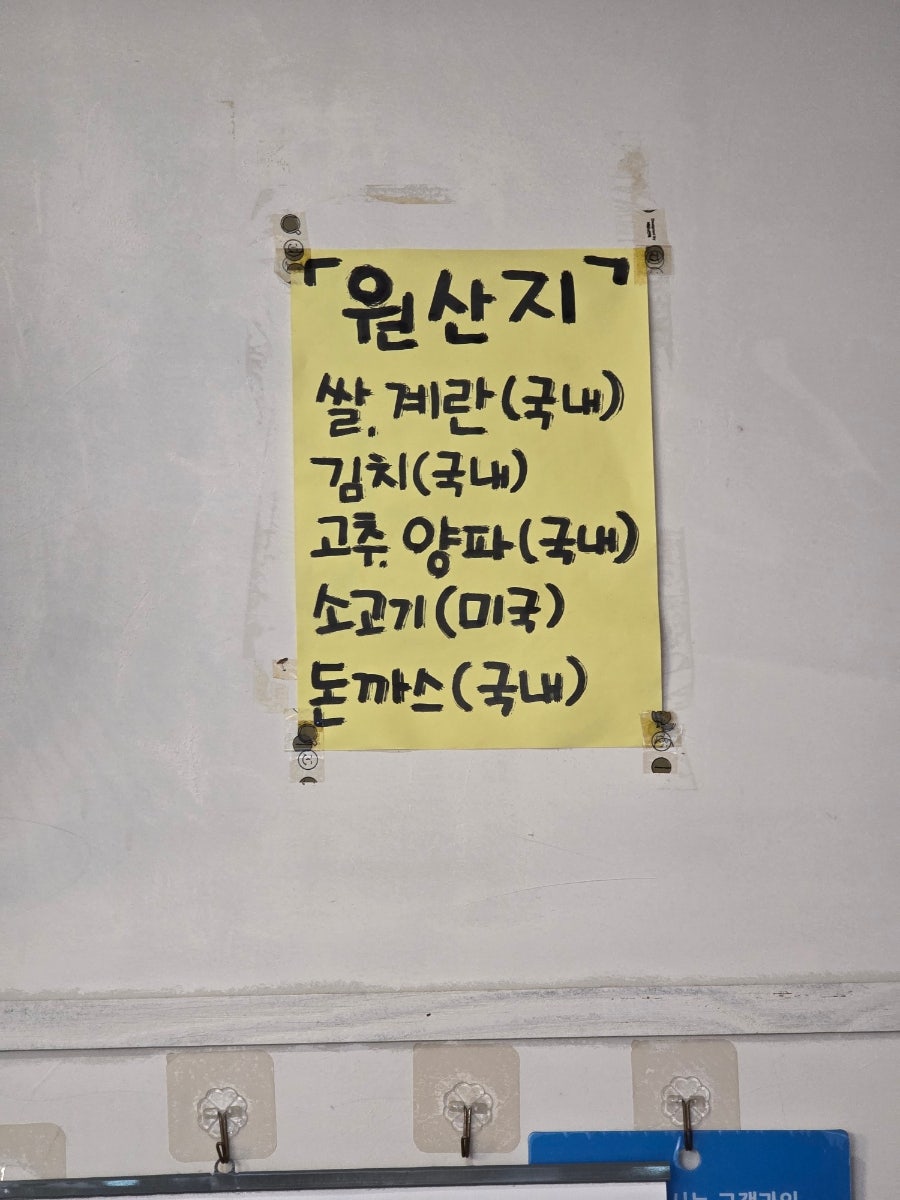 「원산지」
쌀, 계란(국내)
김치(국내)
고추, 양파(국내)
소고기(미국)
돈까스(국내)
고객과의